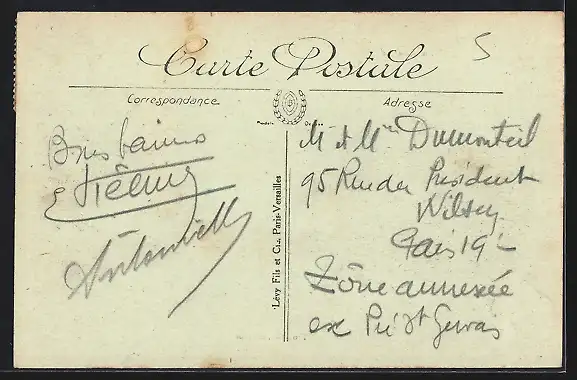 Carte Postale
5
Correspondance
Adresse
Bons baisers
Etienne
Antoinette
Lévy Fils et Cie, Paris-Versailles
M et Mme Dumonteil
95 Rue du Président
Wilson
Paris 19e
Zône annexée
ex Pré St Gervais